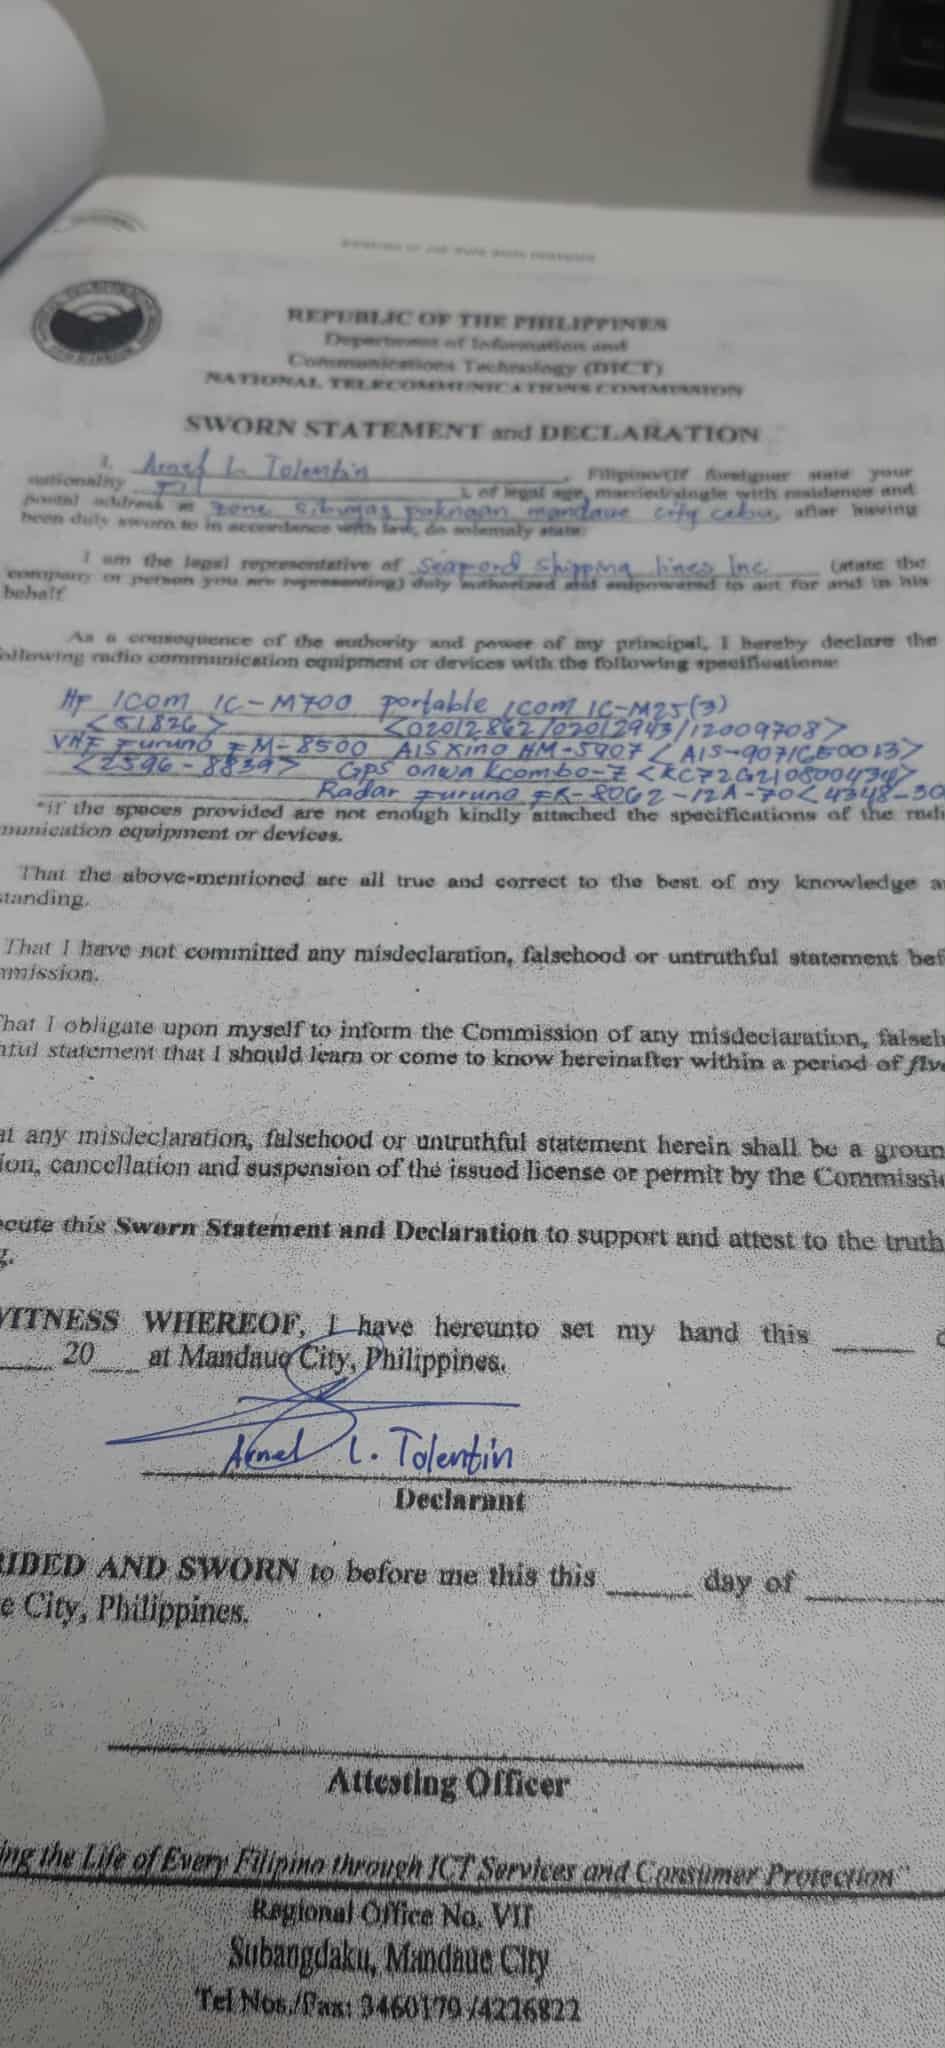 REPUBLIC OF THE PHILIPPINES
Department of Information and
Communications Technology (DICT)
NATIONAL TELECOMMUNICATIONS COMMISSION
SWORN STATEMENT and DECLARATION
I, Arnel L. Tolentin, Filipino/(If foreigner state your
nationality Fil), of legal age, married/single with residence and
postal address at zone sibugas paknaan mandaue city cebu, after having
been duly sworn to in accordance with law, do solemnly state:
I am the legal representative of Seaford Shipping lines Inc (state the
company or person you are representing) duly authorized and empowered to act for and in his
behalf
As a consequence of the authority and power of my principal, I hereby declare the
following radio communication equipment or devices with the following specifications:
HF ICOM IC-M700 portable ICOM IC-M25(3)
<51826> <02012862/02012943/12009708>
VHF Furuno FM-8500 AIS Xino HM-5907 <AIS-9071CE0013>
<2596-8839> GPS onwa Kcombo-7 <KC72G210800434>
Radar Furuno FR-8062-12A-70<4348-30
*if the spaces provided are not enough kindly attached the specifications of the radi
munication equipment or devices.
That the above-mentioned are all true and correct to the best of my knowledge a
standing.
That I have not committed any misdeclaration, falsehood or untruthful statement bef
mmission.
That I obligate upon myself to inform the Commission of any misdeclaration, falseh
thful statement that I should learn or come to know hereinafter within a period of five
at any misdeclaration, falsehood or untruthful statement herein shall be a groun
ion, cancellation and suspension of the issued license or permit by the Commissi
ecute this Sworn Statement and Declaration to support and attest to the truth
g.
WITNESS WHEREOF, I have hereunto set my hand this ____
____ 20___ at Mandaue City, Philippines.
Arnel L. Tolentin
Declarant
RIBED AND SWORN to before me this this _____ day of _____
e City, Philippines.
Attesting Officer
ing the Life of Every Filipino through ICT Services and Consumer Protection"
Regional Office No. VII
Subangdaku, Mandaue City
Tel Nos./Fax: 3460179 /4226822